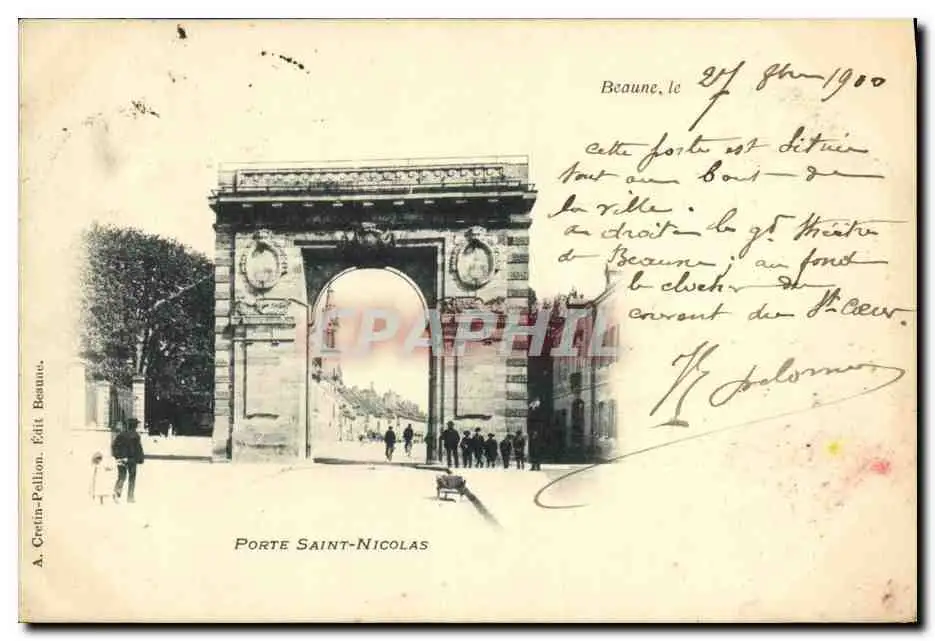 Beaune, le 27 8bre 1900
cette porte est située
tout au bout de
la ville.
à droite le gd théâtre
de Beaune ; au fond
le clocher du
couvent du St Cœur.
CPAPHIL
A. Cretin-Pellion. Édit Beaune.
PORTE SAINT-NICOLAS